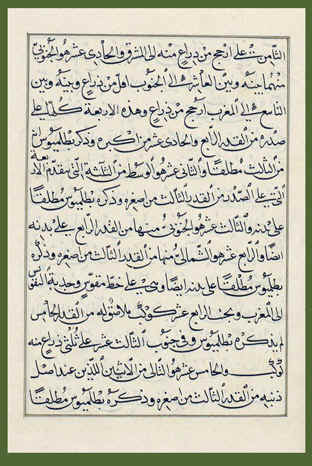 الثامن على ارجح من ذراع منه الى المشرق والحادى عشر هو الجنوبى
منهما بينه وبين العاشر الى الجنوب اقل من ذراع وبينه وبين
التاسع الى المغرب ارجح من ذراع وهذه الاربعة كلها على
صدره من القدر الرابع والحادى عشر من اكبره وذكر بطلميوس انه
من الثالث مطلقا والثانى عشر هو اوسط من الثلثة التى تتقدم الاربعة
التى على الصدر من القدر الثالث من اصغره وذكره بطلميوس مطلقا
على بدنه والثالث عشر هو الجنوبى منها من القدر الرابع على بدنه
ايضا والرابع عشر هو الشمالى منهما من القدر الثالث من اصغره وذكره
بطليموس مطلقا على بدنه ايضا وهى على خط مقوس وحدبة القوس
الى المغرب وبجنب الرابع عشر كوكب ملاصق له من القدر الخامس
لم يذكره بطلميوس وفى جنوب الثالث عشر على ثلثى ذراع منه
كوكب والخامس عشر هو التالى من الاثنين اللذين عند اصل
ذنبه من القدر الثالث من اصغره وذكره بطلميوس مطلقا